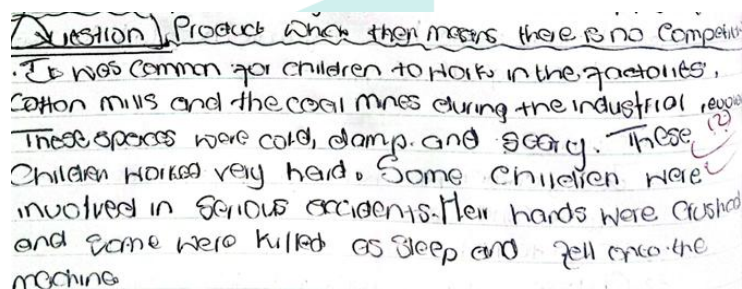 Question) Product which then means there is no Competit
. It was common for children to work in the factories,
Cotton mills and the coal mines during the industrial revou
These spaces were cold, damp. and scary. These (2)
Children worked very hard. Some children were
involved in serious accidents. Their hands were crushed
and some were killed as sleep and fell onto the
machine